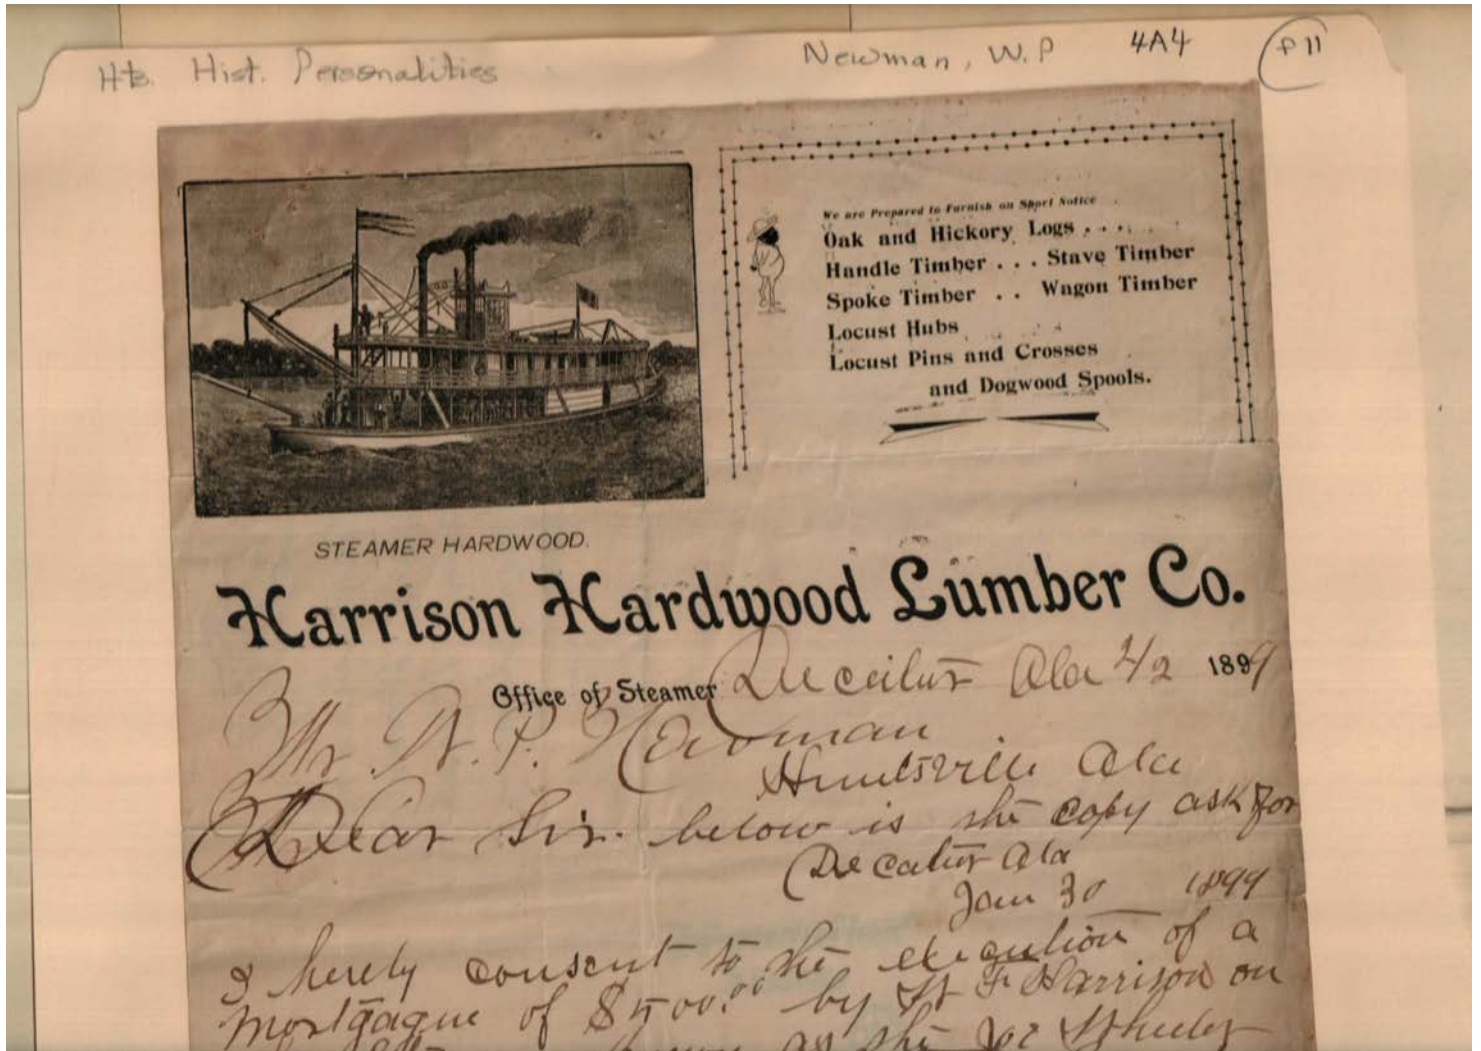 Hts. Hist. Personalities
Newman, W.P 4A4 P11
We are Prepared to Furnish on Short Notice
Oak and Hickory Logs . . . .
Handle Timber . . . Stave Timber
Spoke Timber . . Wagon Timber
Locust Hubs
Locust Pins and Crosses
and Dogwood Spools.
STEAMER HARDWOOD.
Harrison Hardwood Lumber Co.
Office of Steamer Decatur Ala 2/2 1899
Mr. W. P. Newman
Huntsville Ala
Dear Sir. below is the copy ask for
Decatur Ala
Jan 30 1899
I herely consent to the execution of a
mortgague of $500.00 by W F Harrison on
as the Joe Wheeler